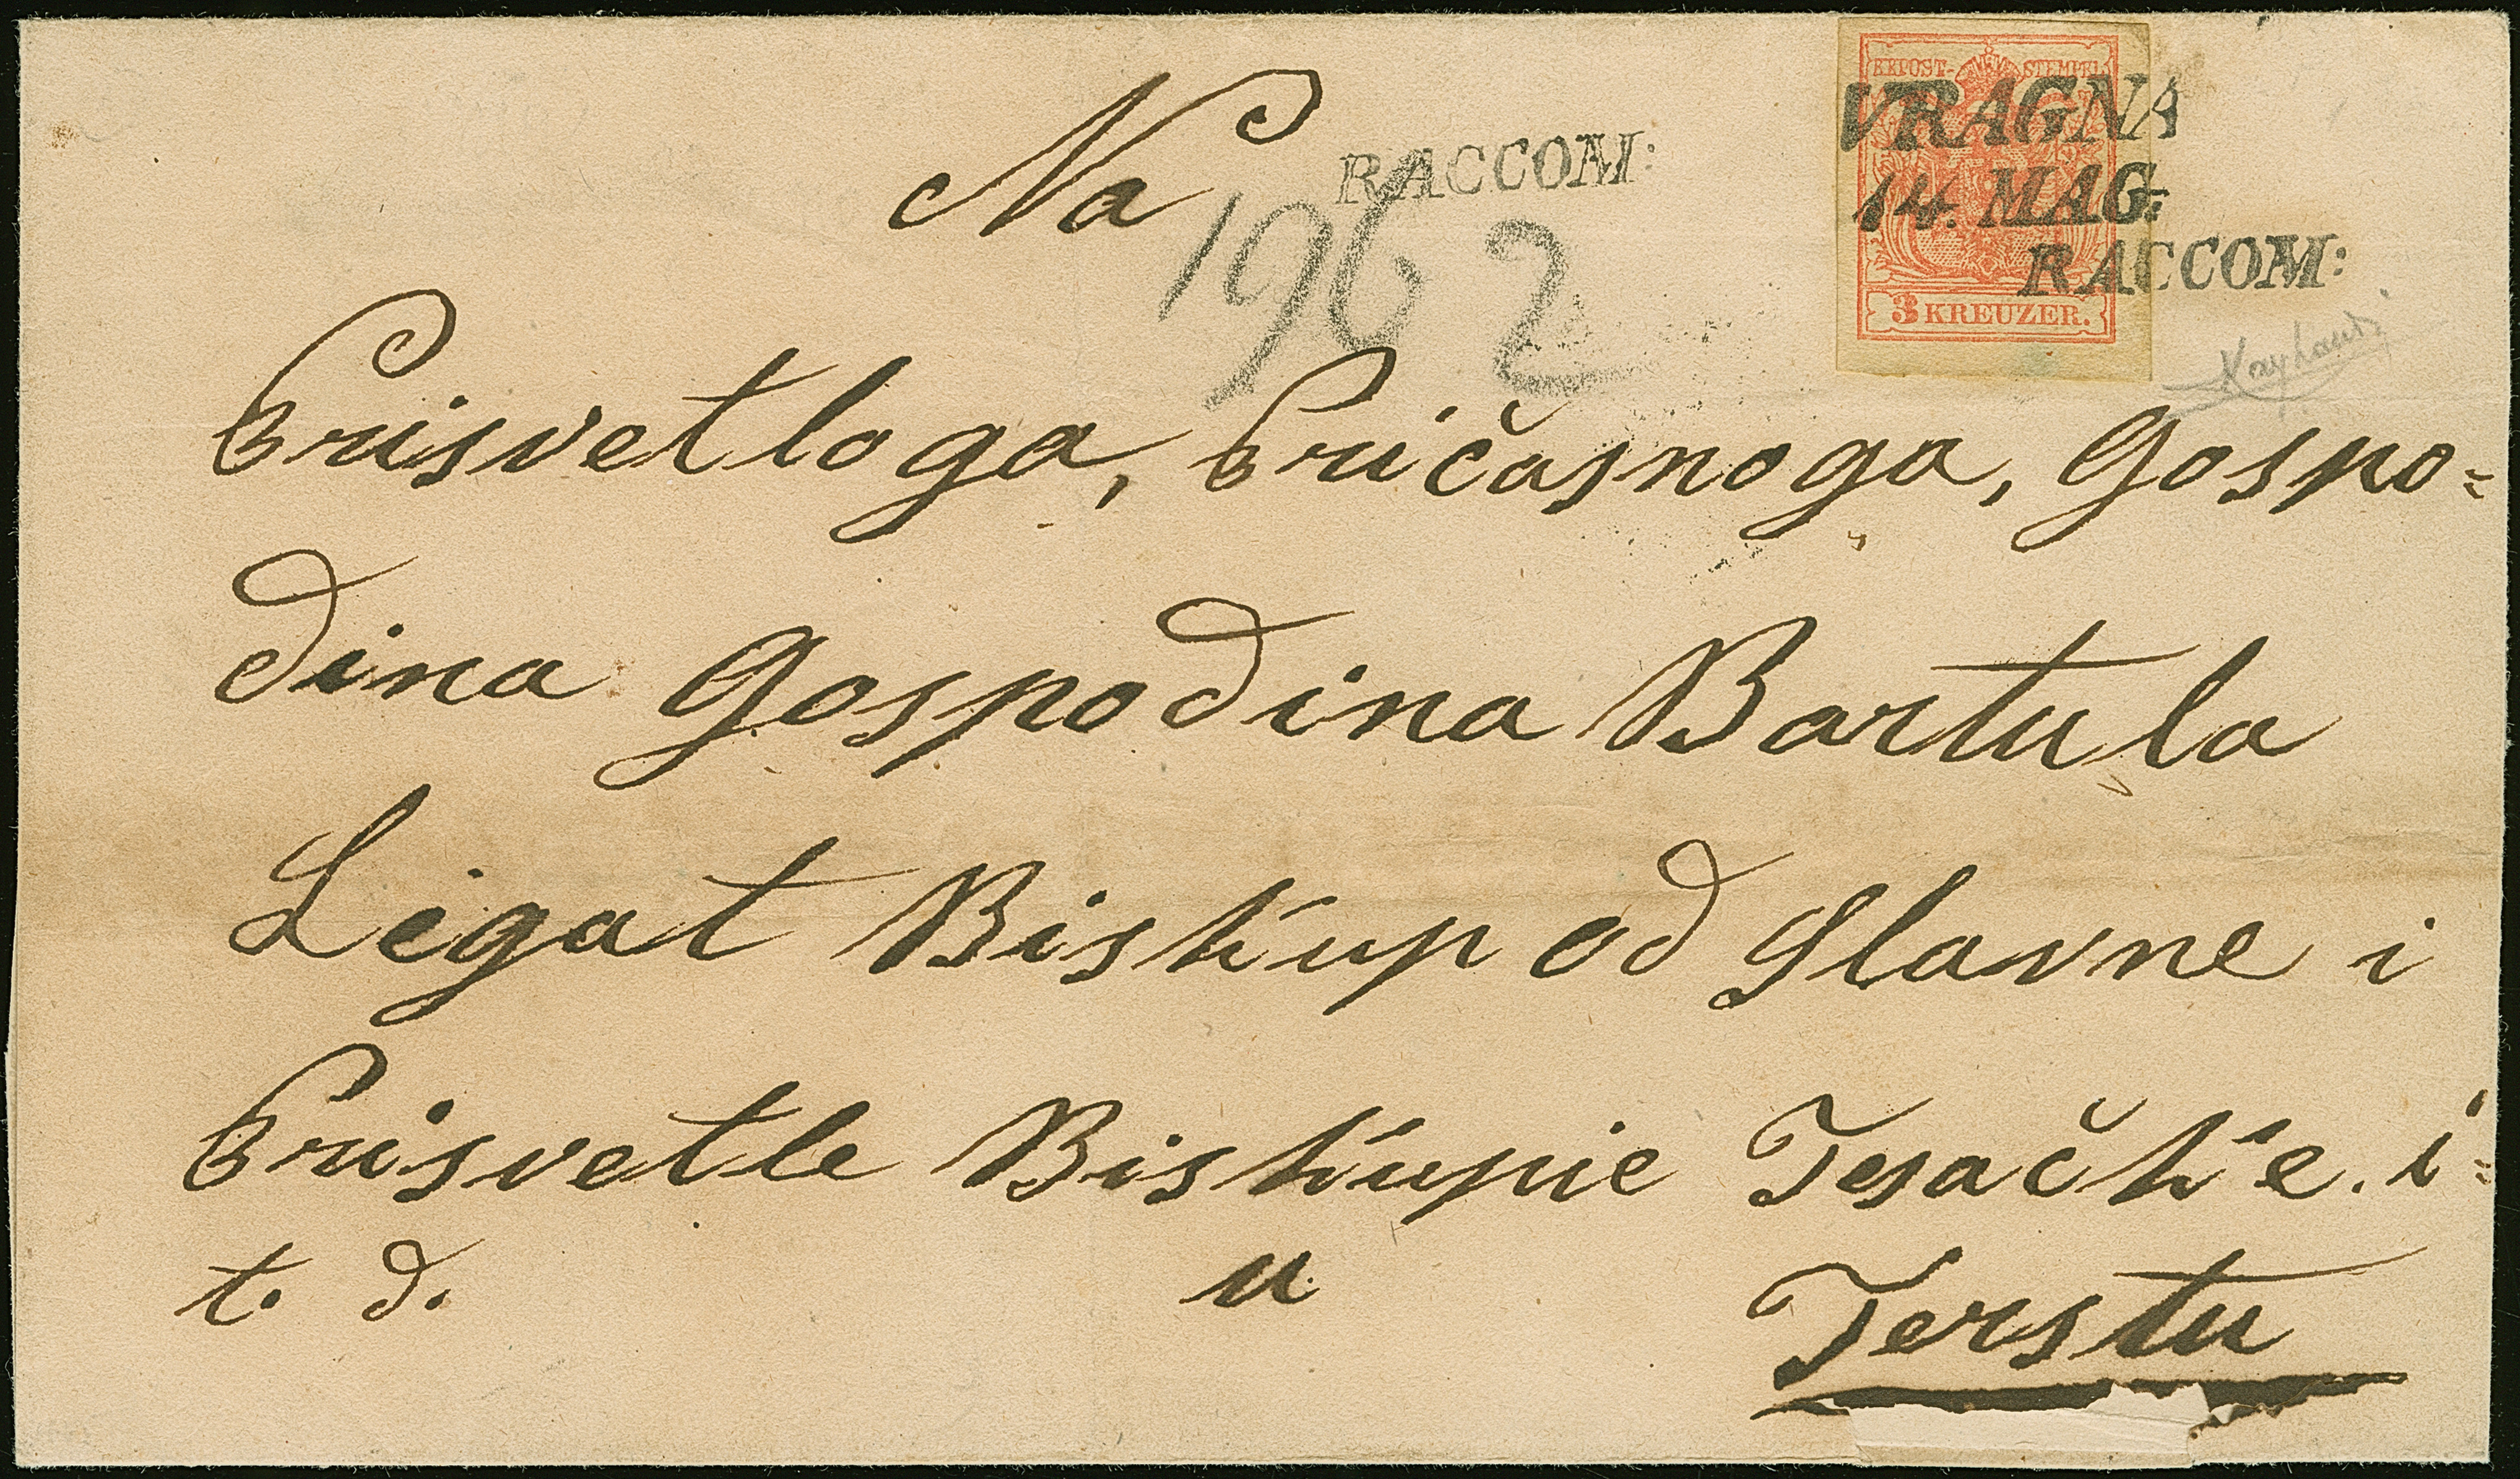 KKPOST-STEMPEL
VRAGNA
14. MAG:
RACCOM:
3 KREUZER.
Na
RACCOM:
1962
Prisvetloga, Pričasnoga, Gospo=
dina Gospodina Bartula
Legat Biskup od Slavne i
Prisvetle Biskupie Tesačke. i=
t. d. u Terstu